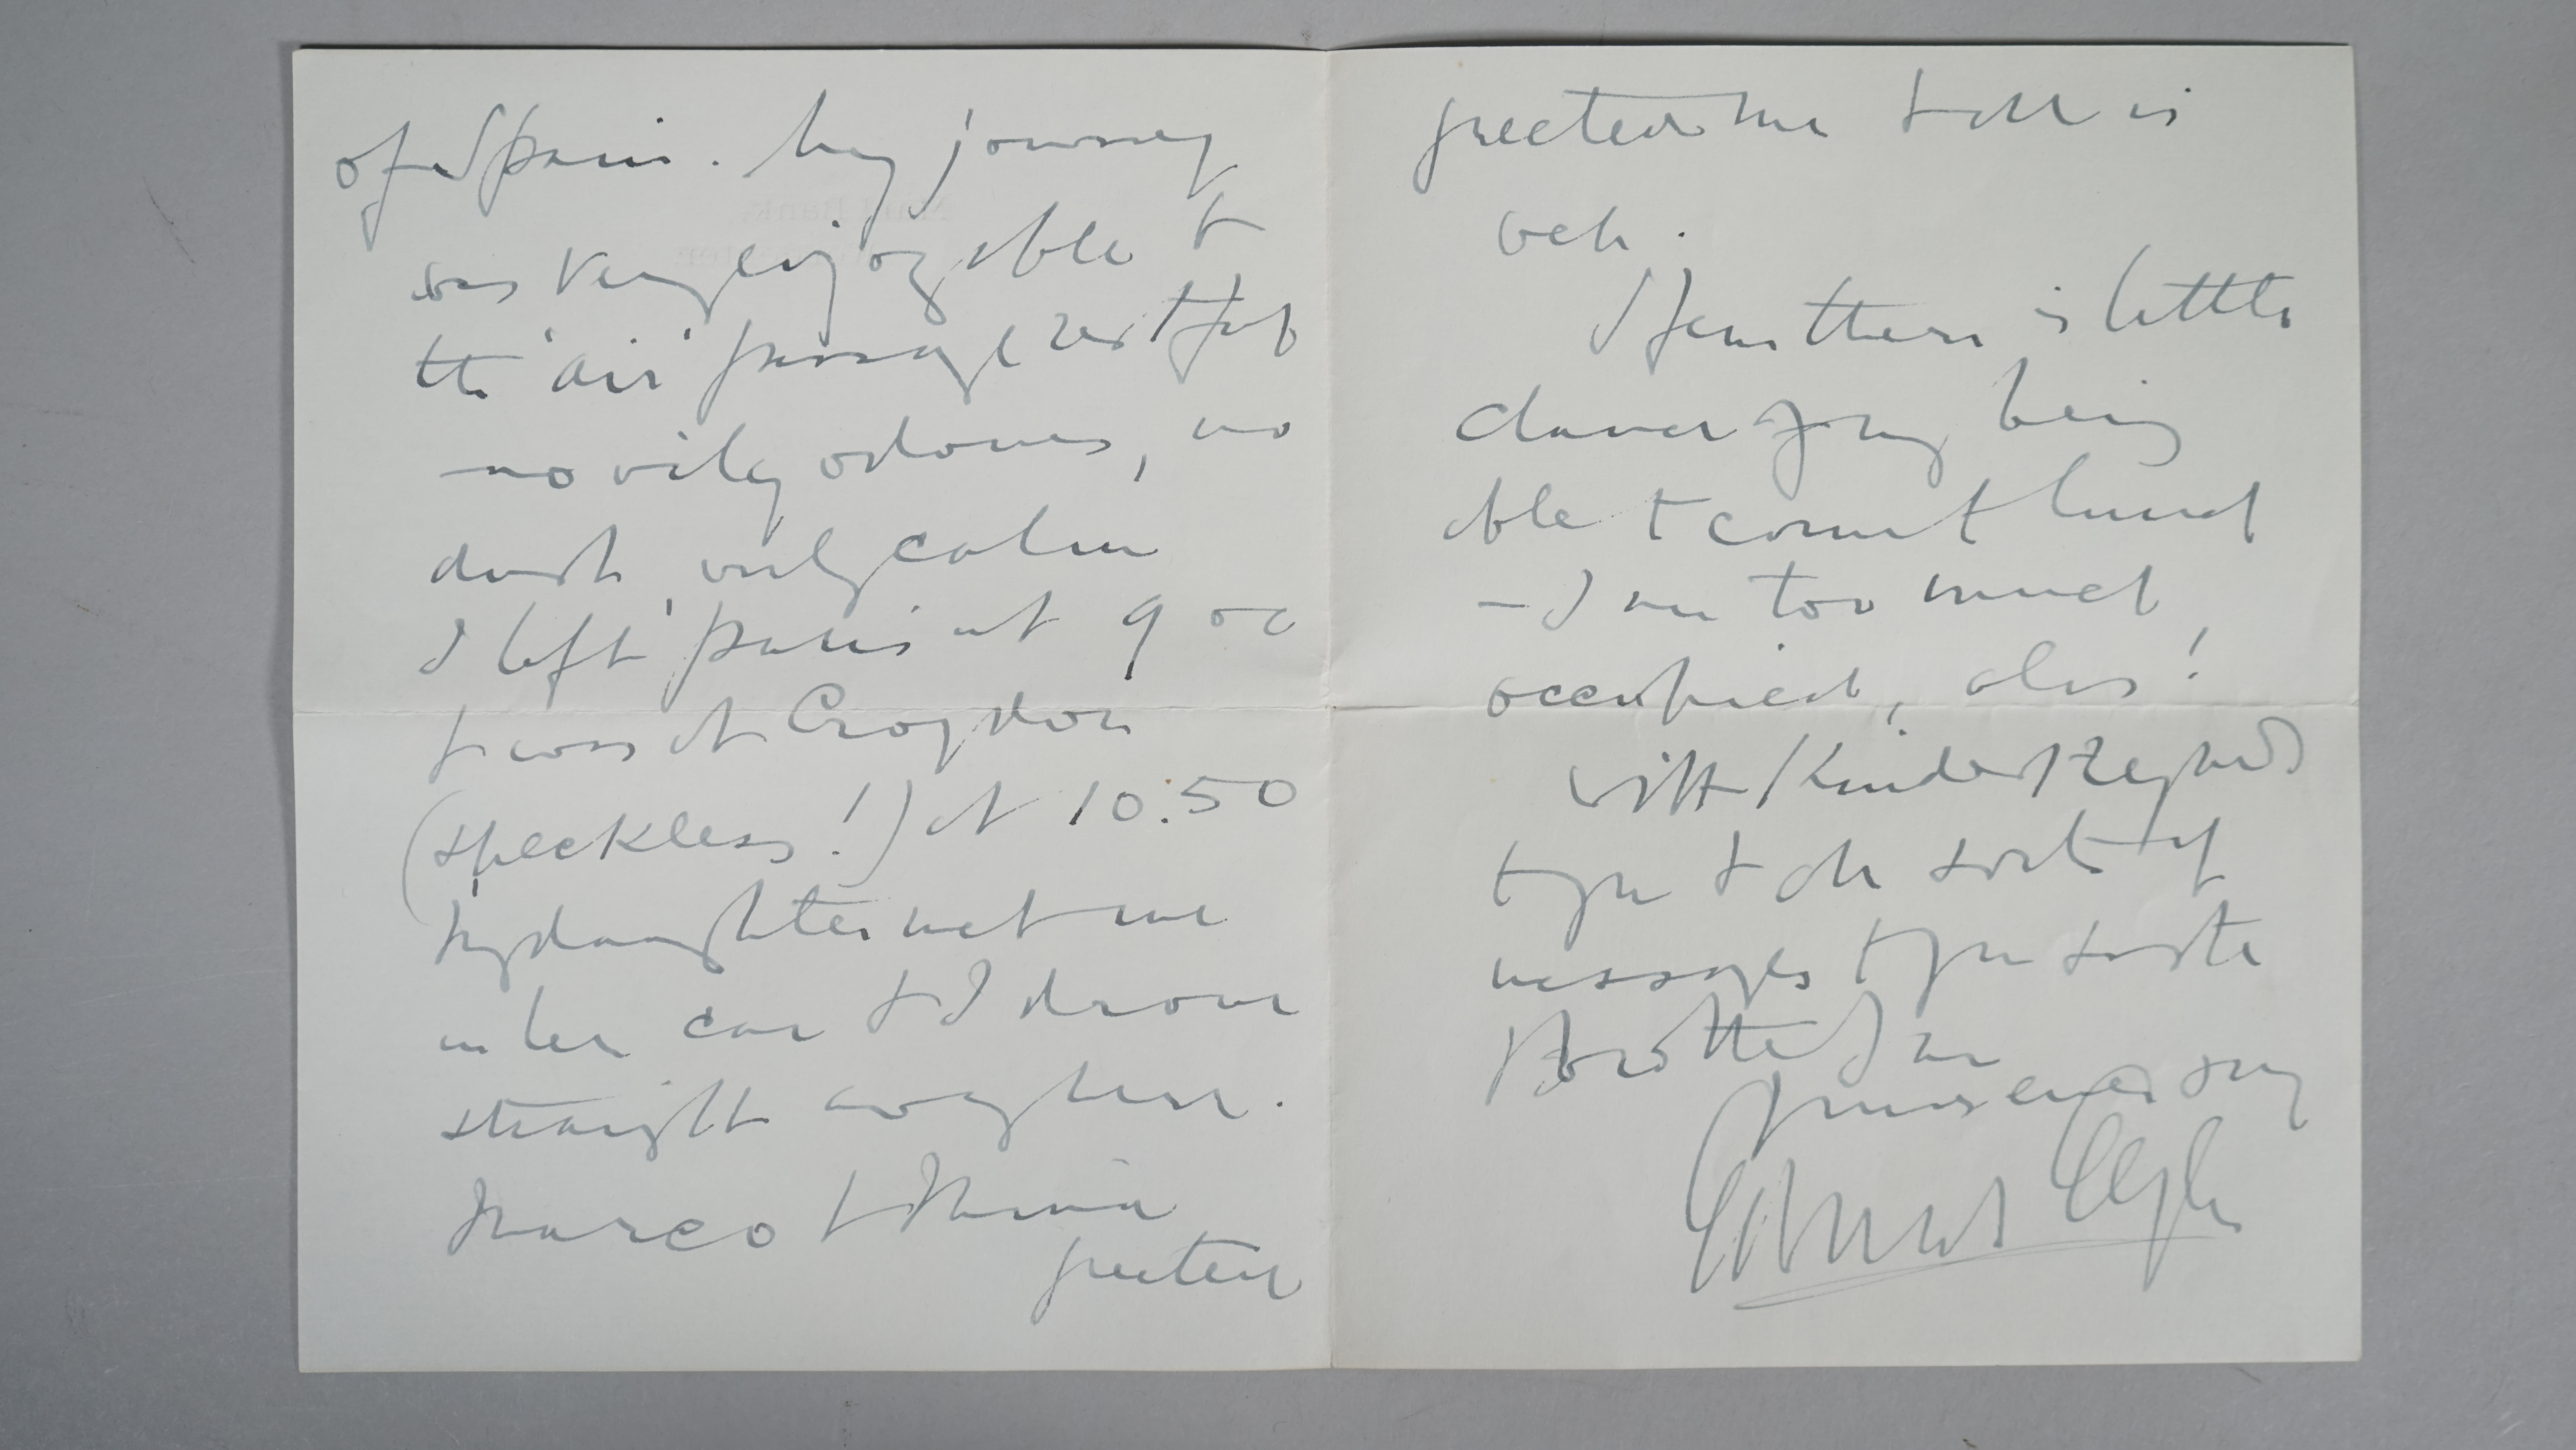 of Spain. My journey
was very enjoyable &
the 'air' passage restful
— no oily odours, no
dust, only calm
I left Paris at 9 oc
& was at Croydon
(speckless!) at 10:50
My daughter met me
in her car & I drove
straight away here.
Marco & Mina
greeted
greeted me & all is
well.
I fear there is little
chance of my being
able to come to lunch
— I am too much
occupied, alas!
With kindest regards
to you & all sorts of
messages to your
Brother I am
Yours ever sincy
Edward Elgar